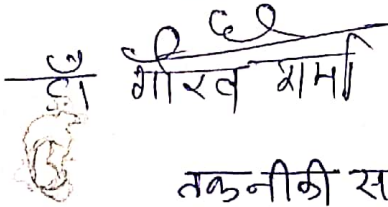 डॉ गौरव शर्मा
तकनीकी स